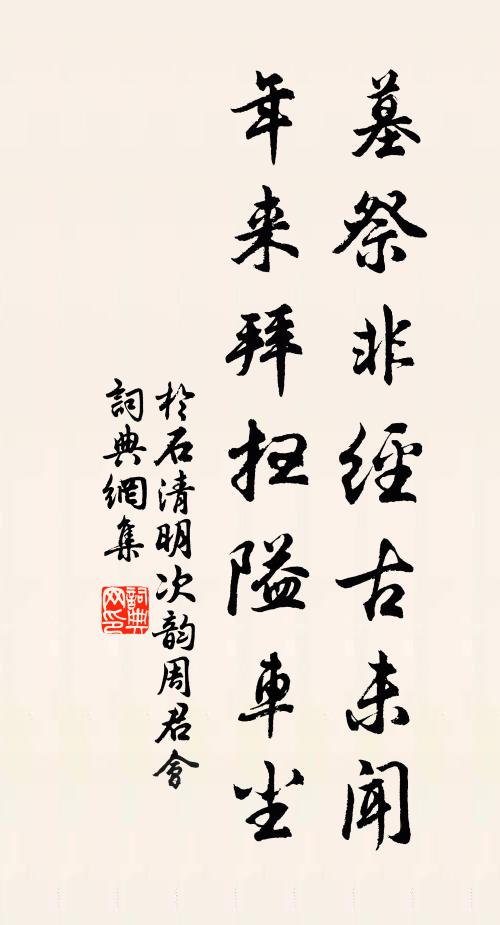 墓祭非經古未聞
年来拜扫隘車尘
於石清明次韵周君會
詞典網集
詞典网印